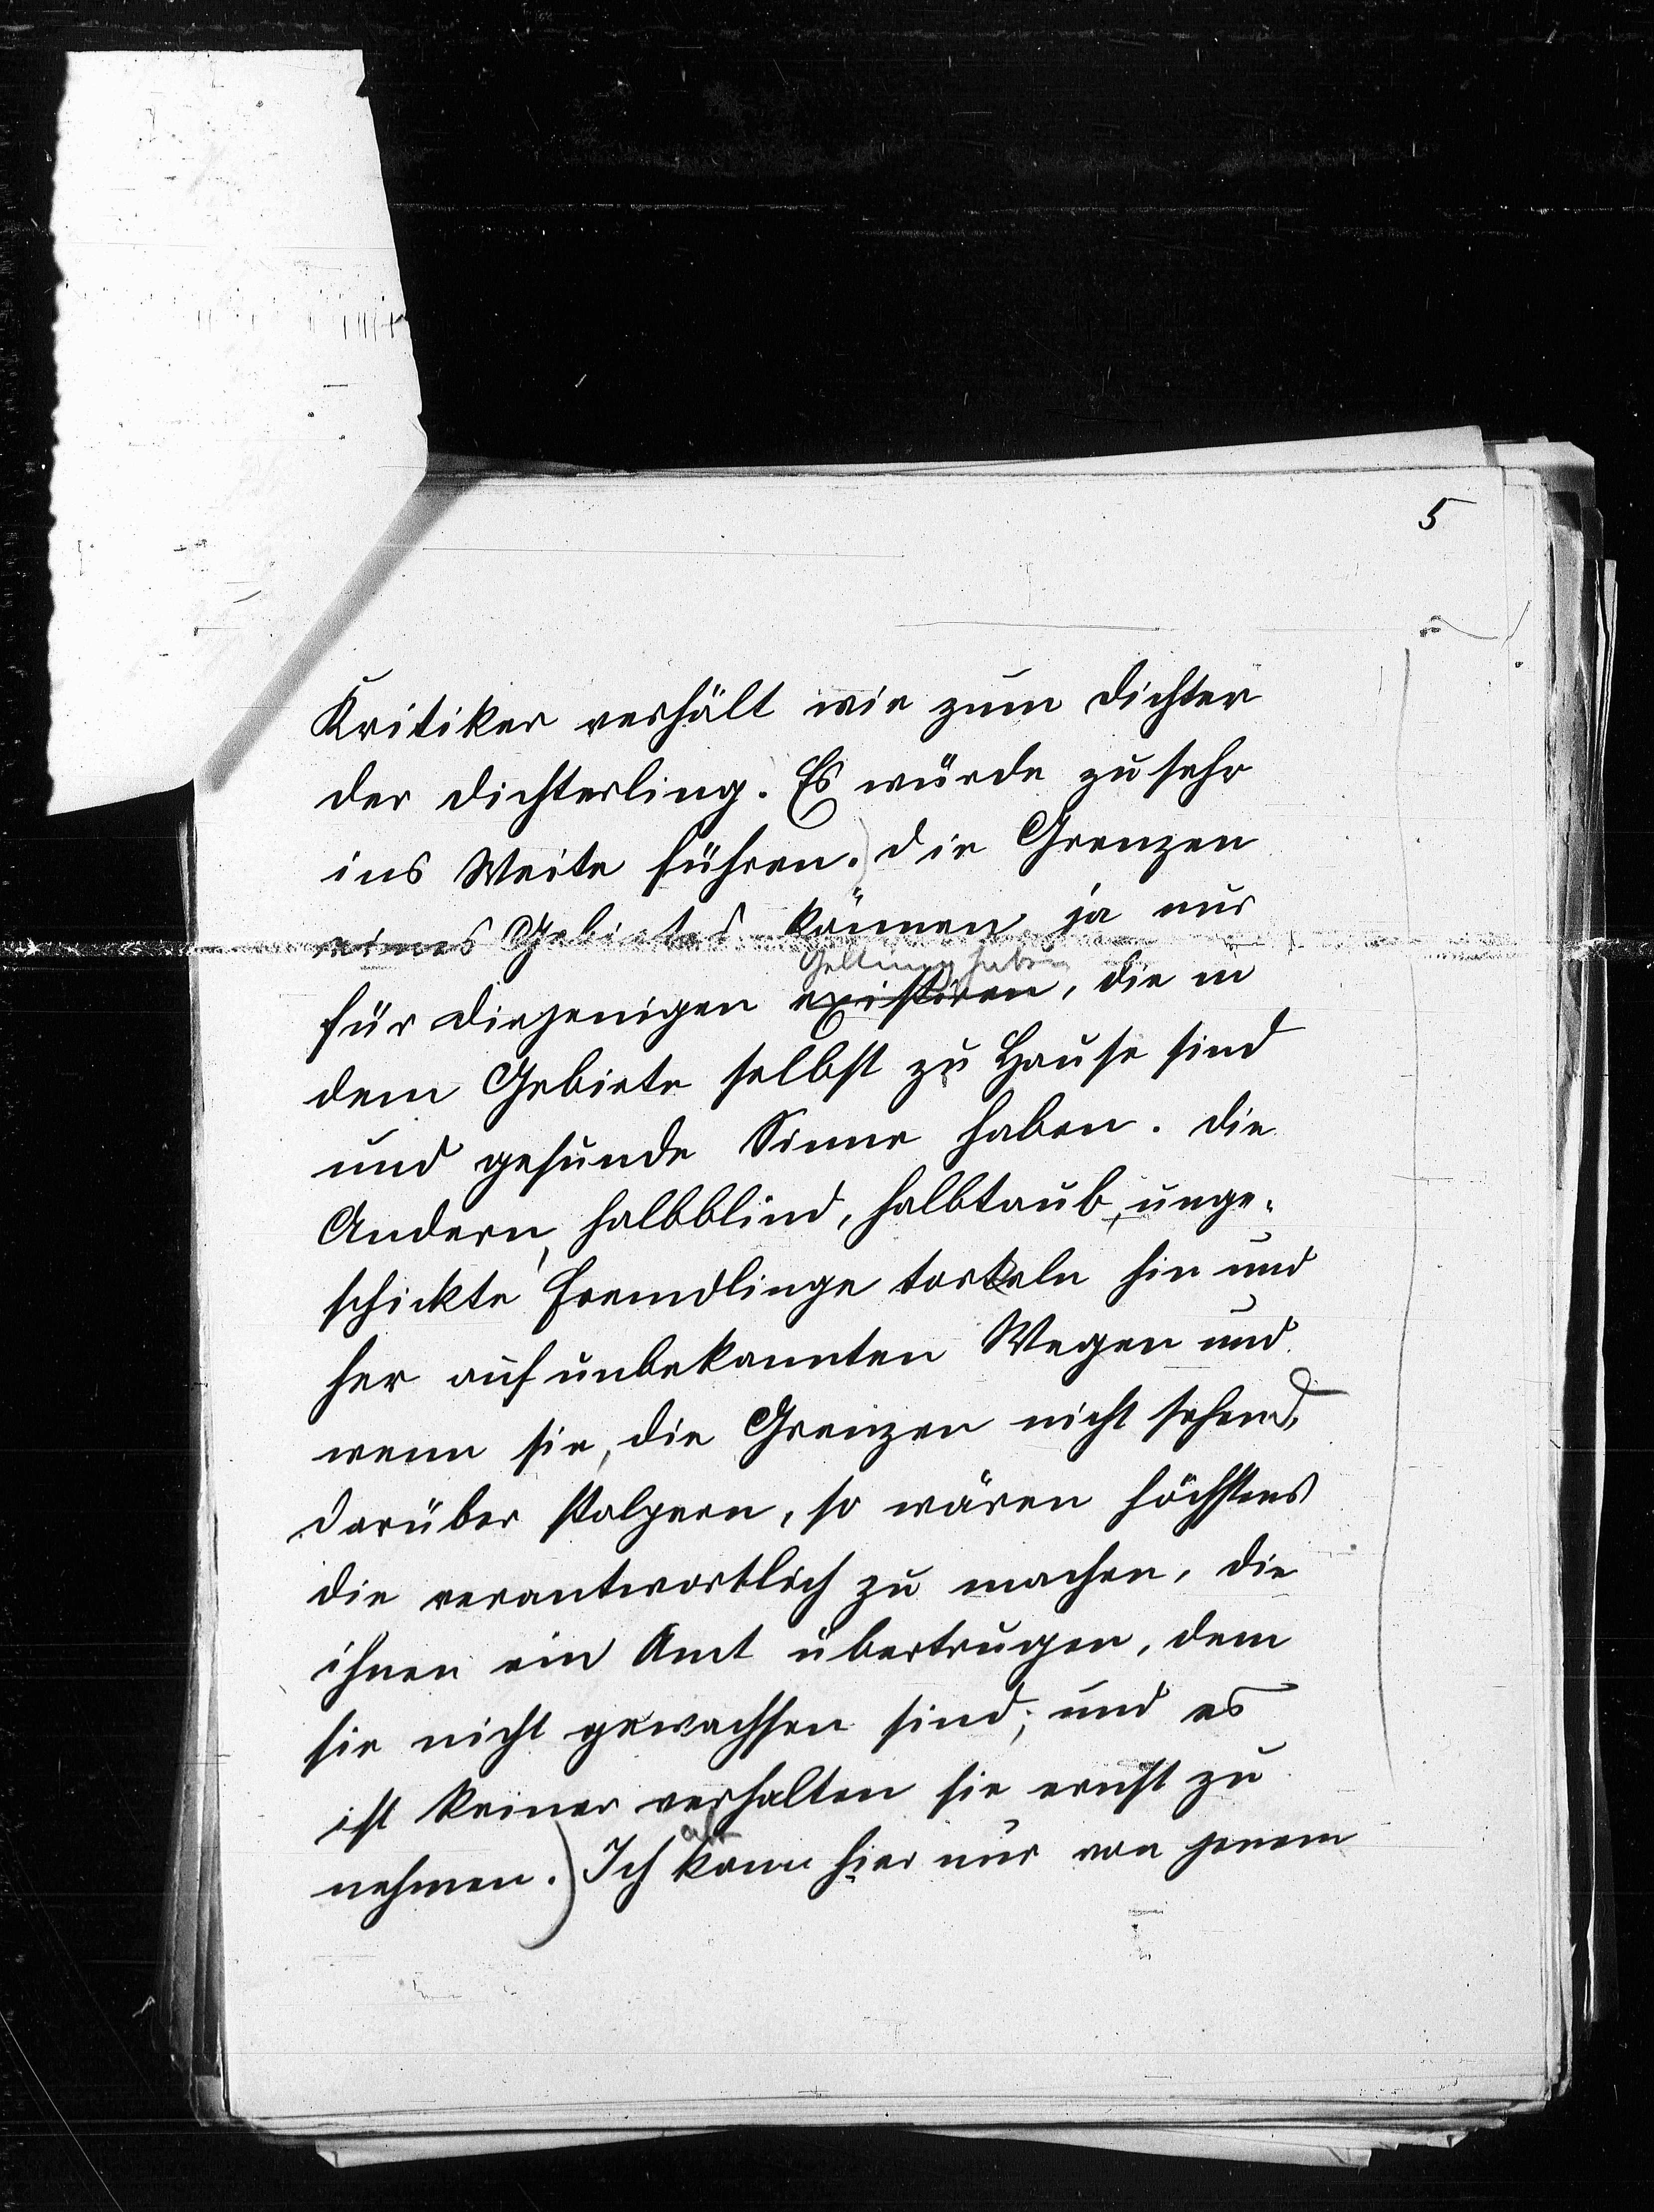 5
Kritiker verhält wie zum Dichter
der Dichterling. Es würde zu sehr
ins Weite führen.) Die Grenzen
eines Gebietes können ja nur
Geltung haben
für diejenigen existiren, die in
dem Gebiete selbst zu Hause sind
und gesunde Sinne haben. Die
Andern, halbblind, halbtaub, unge-
schickte Fremdlinge torkeln hin und
her auf unbekannten Wegen und
wenn sie, die Grenzen nicht sehend,
darüber stolpern, so wären höchstens
die verantwortlich zu machen, die
ihnen ein Amt übertrugen, dem
sie nicht gewachsen sind; und es
ist keiner verhalten sie ernst zu
nehmen.) Ich kann hier nur von jenem